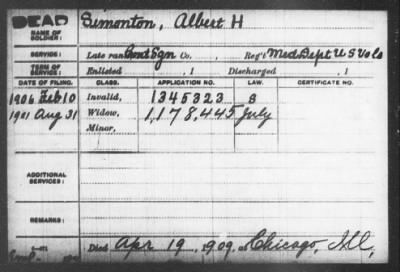 DEAD
NAME OF SOLDIER: Simonton, Albert H
SERVICE: Late rank Cont Sgn Co. , Reg't Med Dept U S Vols
TERM OF SERVICE: Enlisted , 1 Discharged , 1
DATE OF FILING. CLASS. APPLICATION NO. LAW. CERTIFICATE NO.
1906 Feb 10 Invalid, 1345323 S
Aug 31 Widow, 1,178,445 July
Minor,
ADDITIONAL SERVICES:
REMARKS:
Died Apr 19, 1909, at Chicago, Ill,